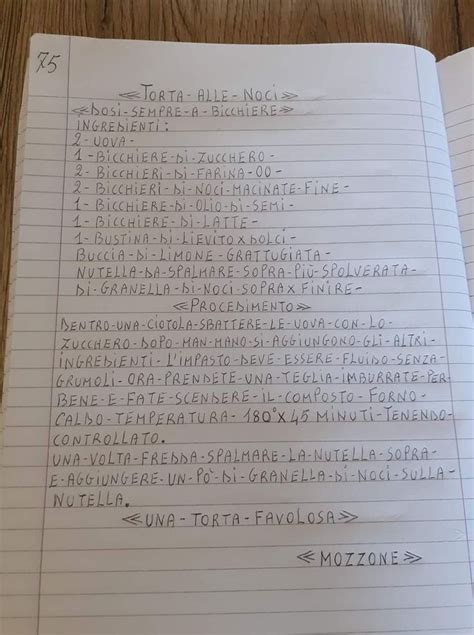 75
≪TORTA-ALLE-NOCI≫
≪DOSI-SEMPRE-A-BICCHIERE≫
INGREDIENTI:
2-UOVA-
1-BICCHIERE-DI-ZUCCHERO-
2-BICCHIERI-DI-FARINA-00-
2-BICCHIERI-DI-NOCI-MACINATE-FINE-
1-BICCHIERE-DI-OLIO-DI-SEMI-
1-BICCHIERE-DI-LATTE-
1-BUSTINA-DI-LIEVITO X DOLCI-
BUCCIA-DI-LIMONE-GRATTUGIATA-
NUTELLA-DA-SPALMARE-SOPRA-PIÙ-SPOLVERATA-
DI-GRANELLA-DI-NOCI-SOPRA X FINIRE-
≪PROCEDIMENTO≫
DENTRO-UNA-CIOTOLA-SBATTERE-LE-UOVA-CON-LO-
ZUCCHERO-DOPO-MAN-MANO-SI-AGGIUNGONO-GLI-ALTRI-
INGREDIENTI-L'IMPASTO-DEVE-ESSERE-FLUIDO-SENZA-
GRUMOLI-ORA-PRENDETE-UNA-TEGLIA-IMBURRATE-PER-
BENE-E-FATE-SCENDERE-IL-COMPOSTO-FORNO-
CALDO-TEMPERATURA-180° X 45 MINUTI-TENENDO-
CONTROLLATO.
UNA-VOLTA-FREDDA-SPALMARE-LA-NUTELLA-SOPRA-
E-AGGIUNGERE-UN-PÒ-DI-GRANELLA-DI-NOCI-SULLA-
NUTELLA.
≪UNA-TORTA-FAVOLOSA≫
≪MOZZONE≫